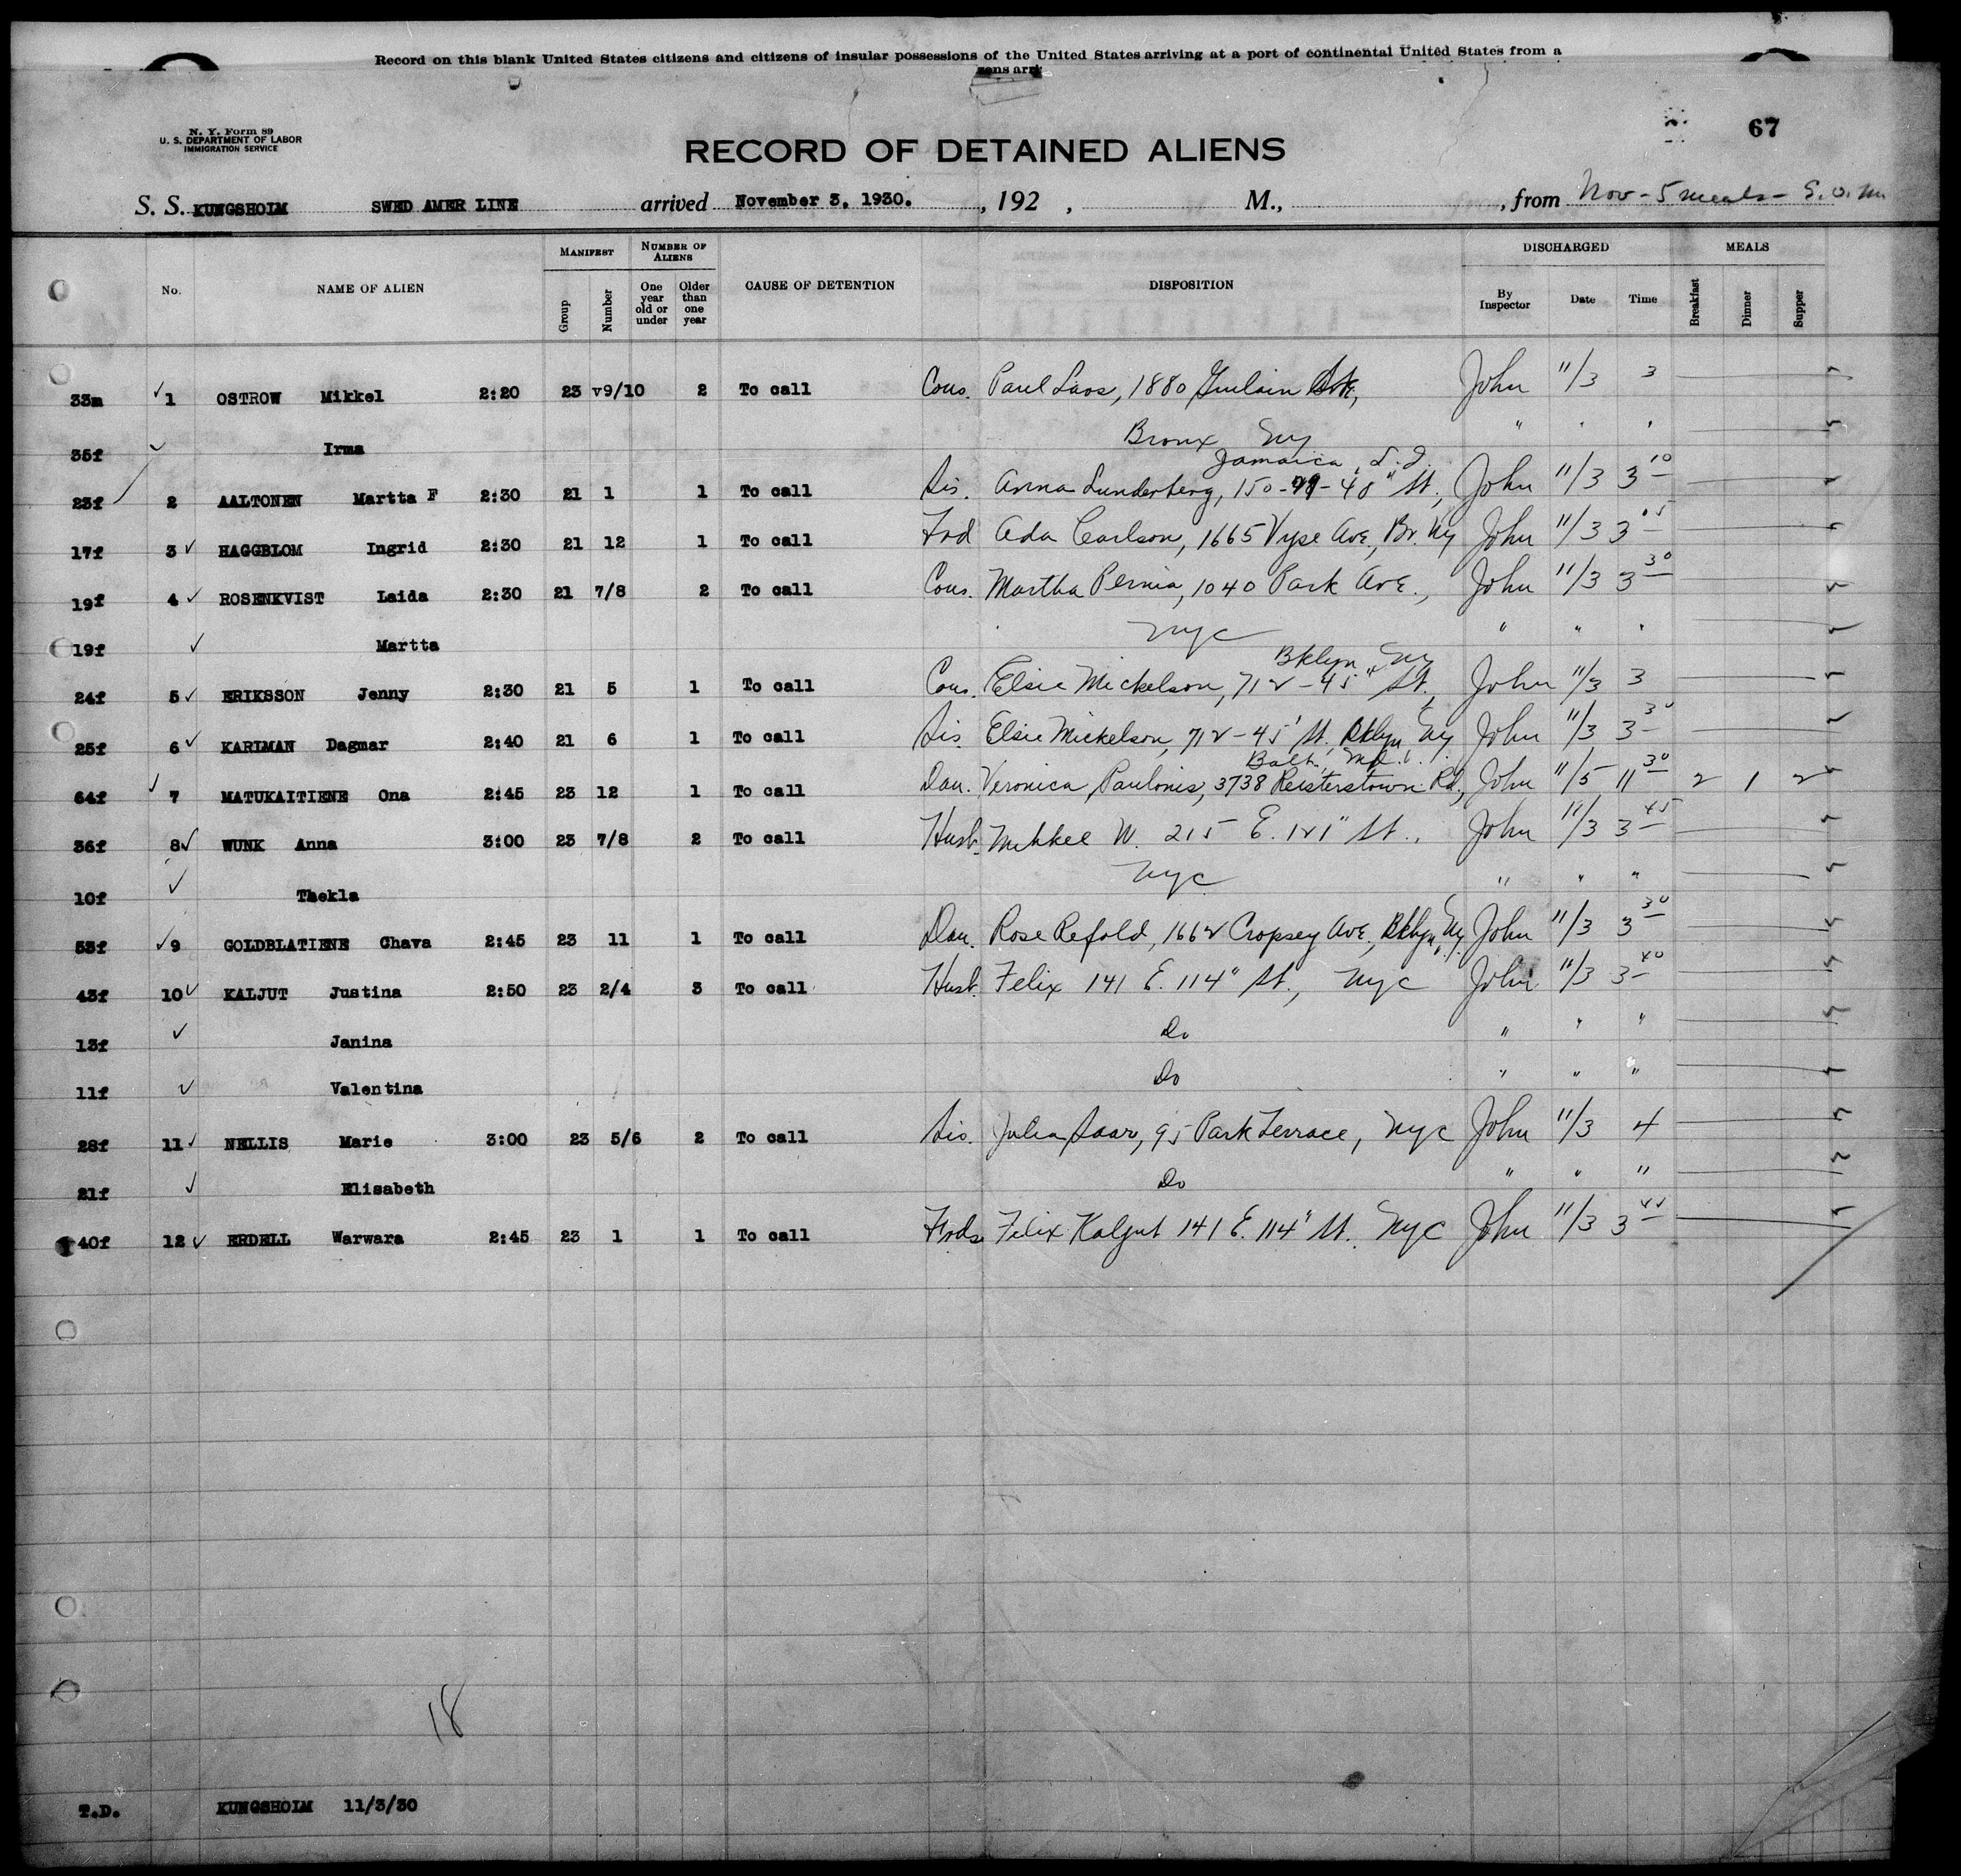 Record on this blank United States citizens and citizens of insular possessions of the United States arriving at a port of continental United States from a
zens arri
N. Y. Form 89
U. S. DEPARTMENT OF LABOR
IMMIGRATION SERVICE
67
RECORD OF DETAINED ALIENS
S. S. KUNGSHOLM SWED AMER LINE arrived November 3, 1930. , 192 , M., , from Nov - 5 meals -
MANIFEST NUMBER OF ALIENS DISCHARGED MEALS
No. NAME OF ALIEN Group Number One year old or under Older than one year CAUSE OF DETENTION DISPOSITION By Inspector Date Time Breakfast Dinner Supper
33m 1 OSTROW Mikkel 2:20 23 v9/10 2 To call Cous. Paul Laos, 1880 John 11/3 3
35f Irma Bronx Ny " " "
Jamaica, L.I.
23f 2 AALTONEN Martta F 2:30 21 1 1 To call Sis. Anna Lunderberg, 150-  - 48" St., John 11/3 3 10
17f 3 HAGGBLOM Ingrid 2:30 21 12 1 To call Frd Ada Carlson, 1665 Vyse Ave., Br. Ny John 11/3 3 05
19f 4 ROSENKVIST Laida 2:30 21 7/8 2 To call Cous. Martha Pernia, 1040 Park Ave., John 11/3 3 30
19f Martta NYC " " "
Bklyn Ny
24f 5 ERIKSSON Jenny 2:30 21 5 1 To call Cous. Elsie Mickelson, 712 - 45" St., John 11/3 3
25f 6 KARIMAN Dagmar 2:40 21 6 1 To call Sis. Elsie Mickelson, 712 - 45' St. Bklyn Ny John 11/3 3 30
Balt. Md.
64f 7 MATUKAITIENE Ona 2:45 23 12 1 To call Dau. Veronica Paulonis, 3738 Reisterstown Rd, John 11/5 11 30 2 1 2
36f 8 WUNK Anna 3:00 23 7/8 2 To call Husb. Mihkel W. 215 E. 121" St., John 11/3 3 45
10f Thekla NYC " " "
53f 9 GOLDBLATIENE Chava 2:45 23 11 1 To call Dau. Rose Refold, 1662 Cropsey Ave., Bklyn, Ny John 11/3 3 30
43f 10 KALJUT Justina 2:50 23 2/4 3 To call Husb. Felix 141 E. 114" St., NYC John 11/3 3 40
13f Janina Do " " "
11f Valentina Do " " "
28f 11 NELLIS Marie 3:00 23 5/6 2 To call Sis. Julia Saar, 95 Park Terrace, NYC John 11/3 4
21f Elisabeth Do " " "
40f 12 ERDELL Warwara 2:45 23 1 1 To call Frds Felix Kaljut 141 E. 114" St. NYC John 11/3 3 45
18
T.D. KUNGSHOLM 11/3/30